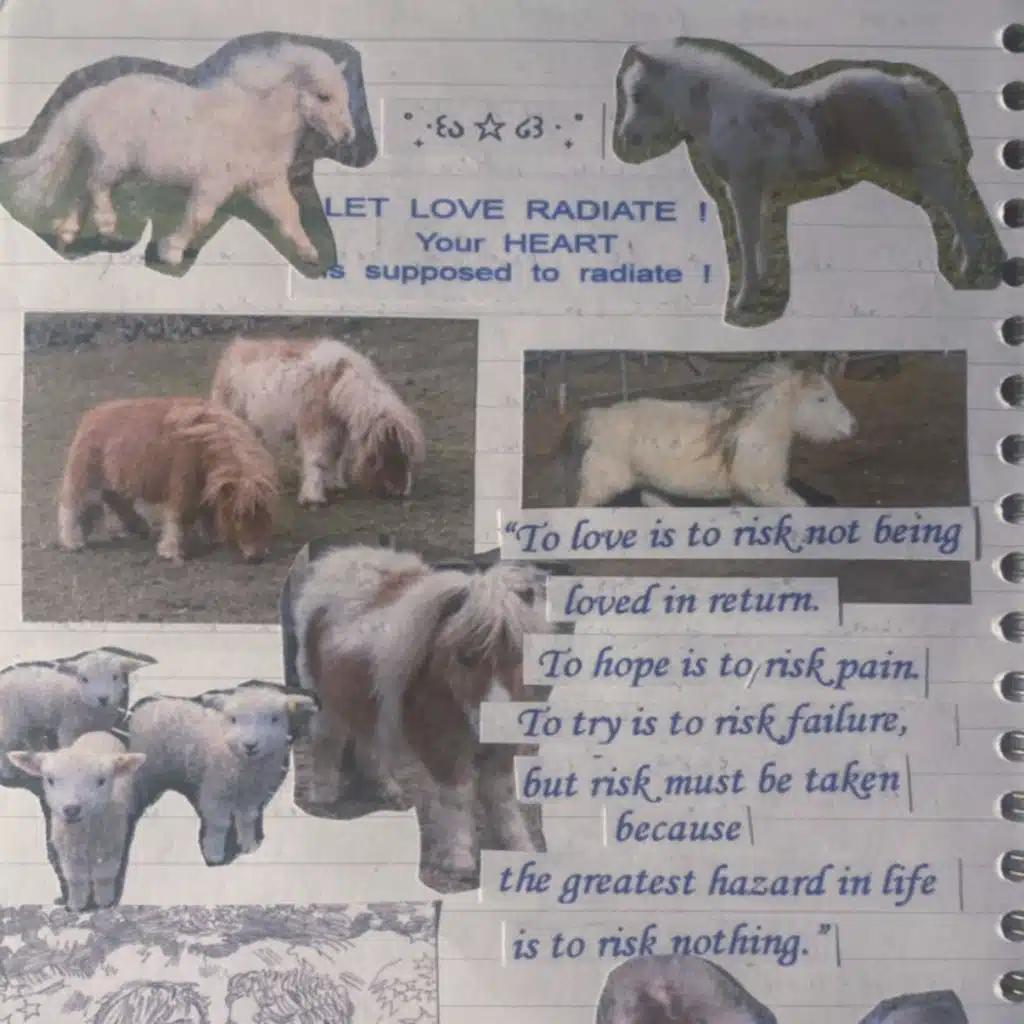 LET LOVE RADIATE !
Your HEART
is supposed to radiate !
“To love is to risk not being
loved in return.
To hope is to risk pain.
To try is to risk failure,
but risk must be taken
because
the greatest hazard in life
is to risk nothing.”